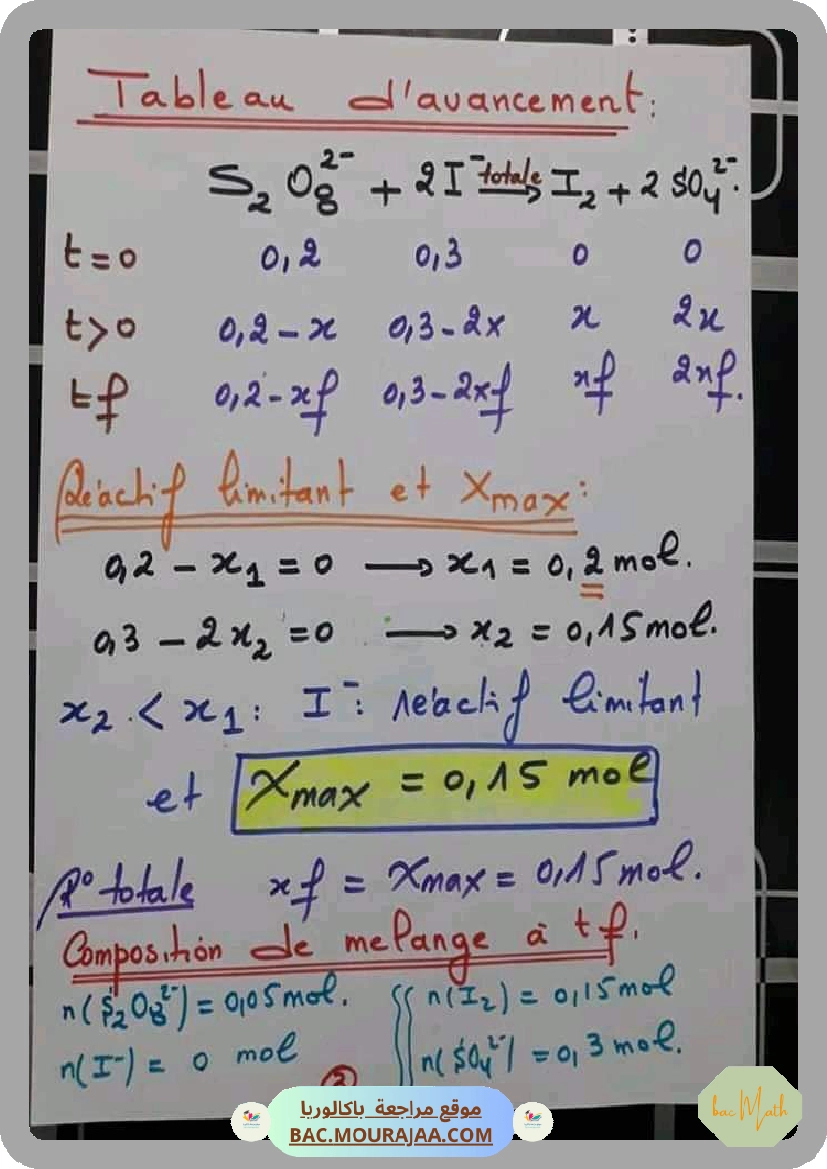 Tableau d'avancement :
S₂O₈²⁻ + 2I⁻ totale→ I₂ + 2SO₄²⁻.
t=0 0,2 0,3 0 0
t>0 0,2-x 0,3-2x x 2x
tf 0,2-xf 0,3-2xf xf 2xf.
Réactif limitant et Xmax :
0,2 - x₁ = 0 → x₁ = 0,2 mol.
0,3 - 2x₂ = 0 → x₂ = 0,15 mol.
x₂ < x₁ : I⁻ : réactif limitant
et Xmax = 0,15 mol
R° totale xf = Xmax = 0,15 mol.
Composition de melange à tf.
n(S₂O₈²⁻) = 0,05 mol. n(I₂) = 0,15 mol
n(I⁻) = 0 mol n(SO₄²⁻) = 0,3 mol.
موقع مراجعة باكالوريا
BAC.MOURAJAA.COM
bacMath